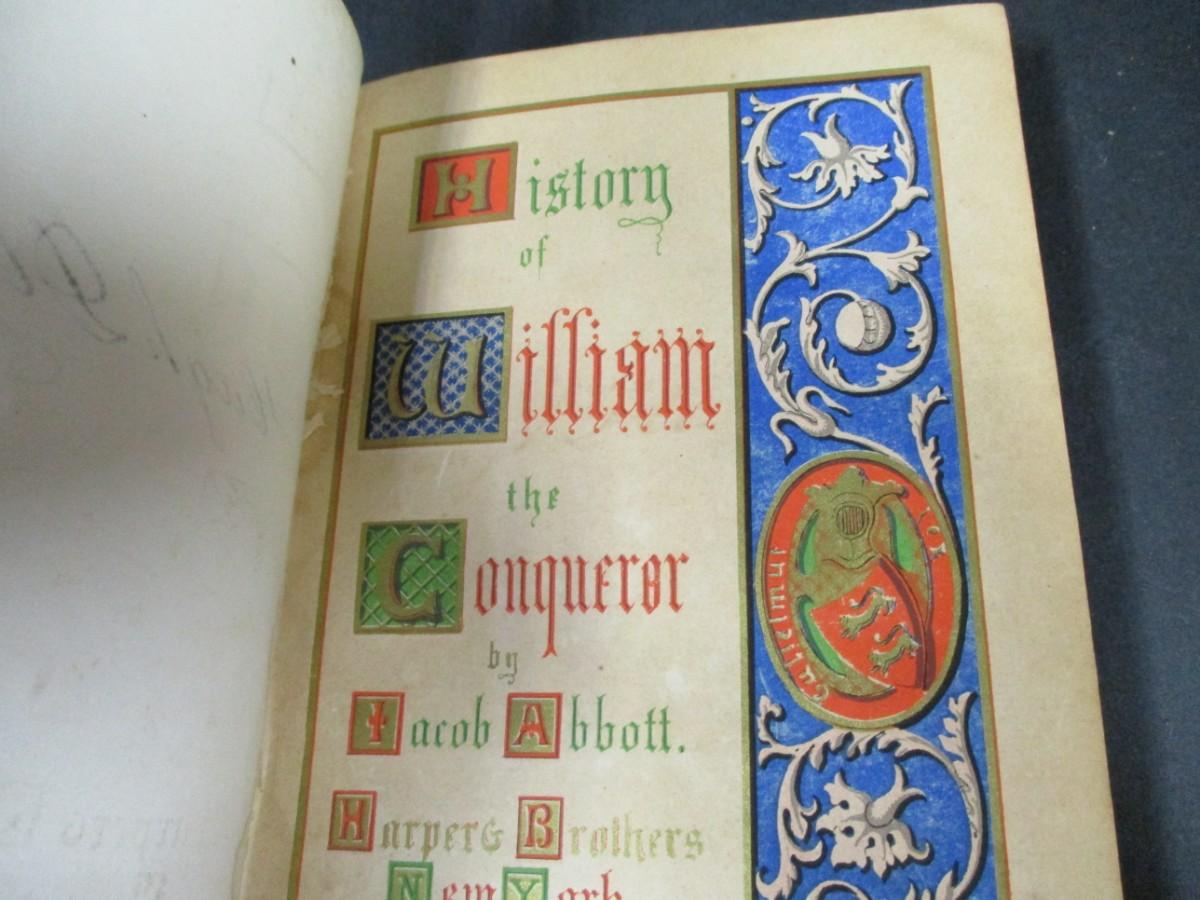 History
of
William
the
Conqueror
by
Jacob Abbott.
Harper & Brothers
New York.